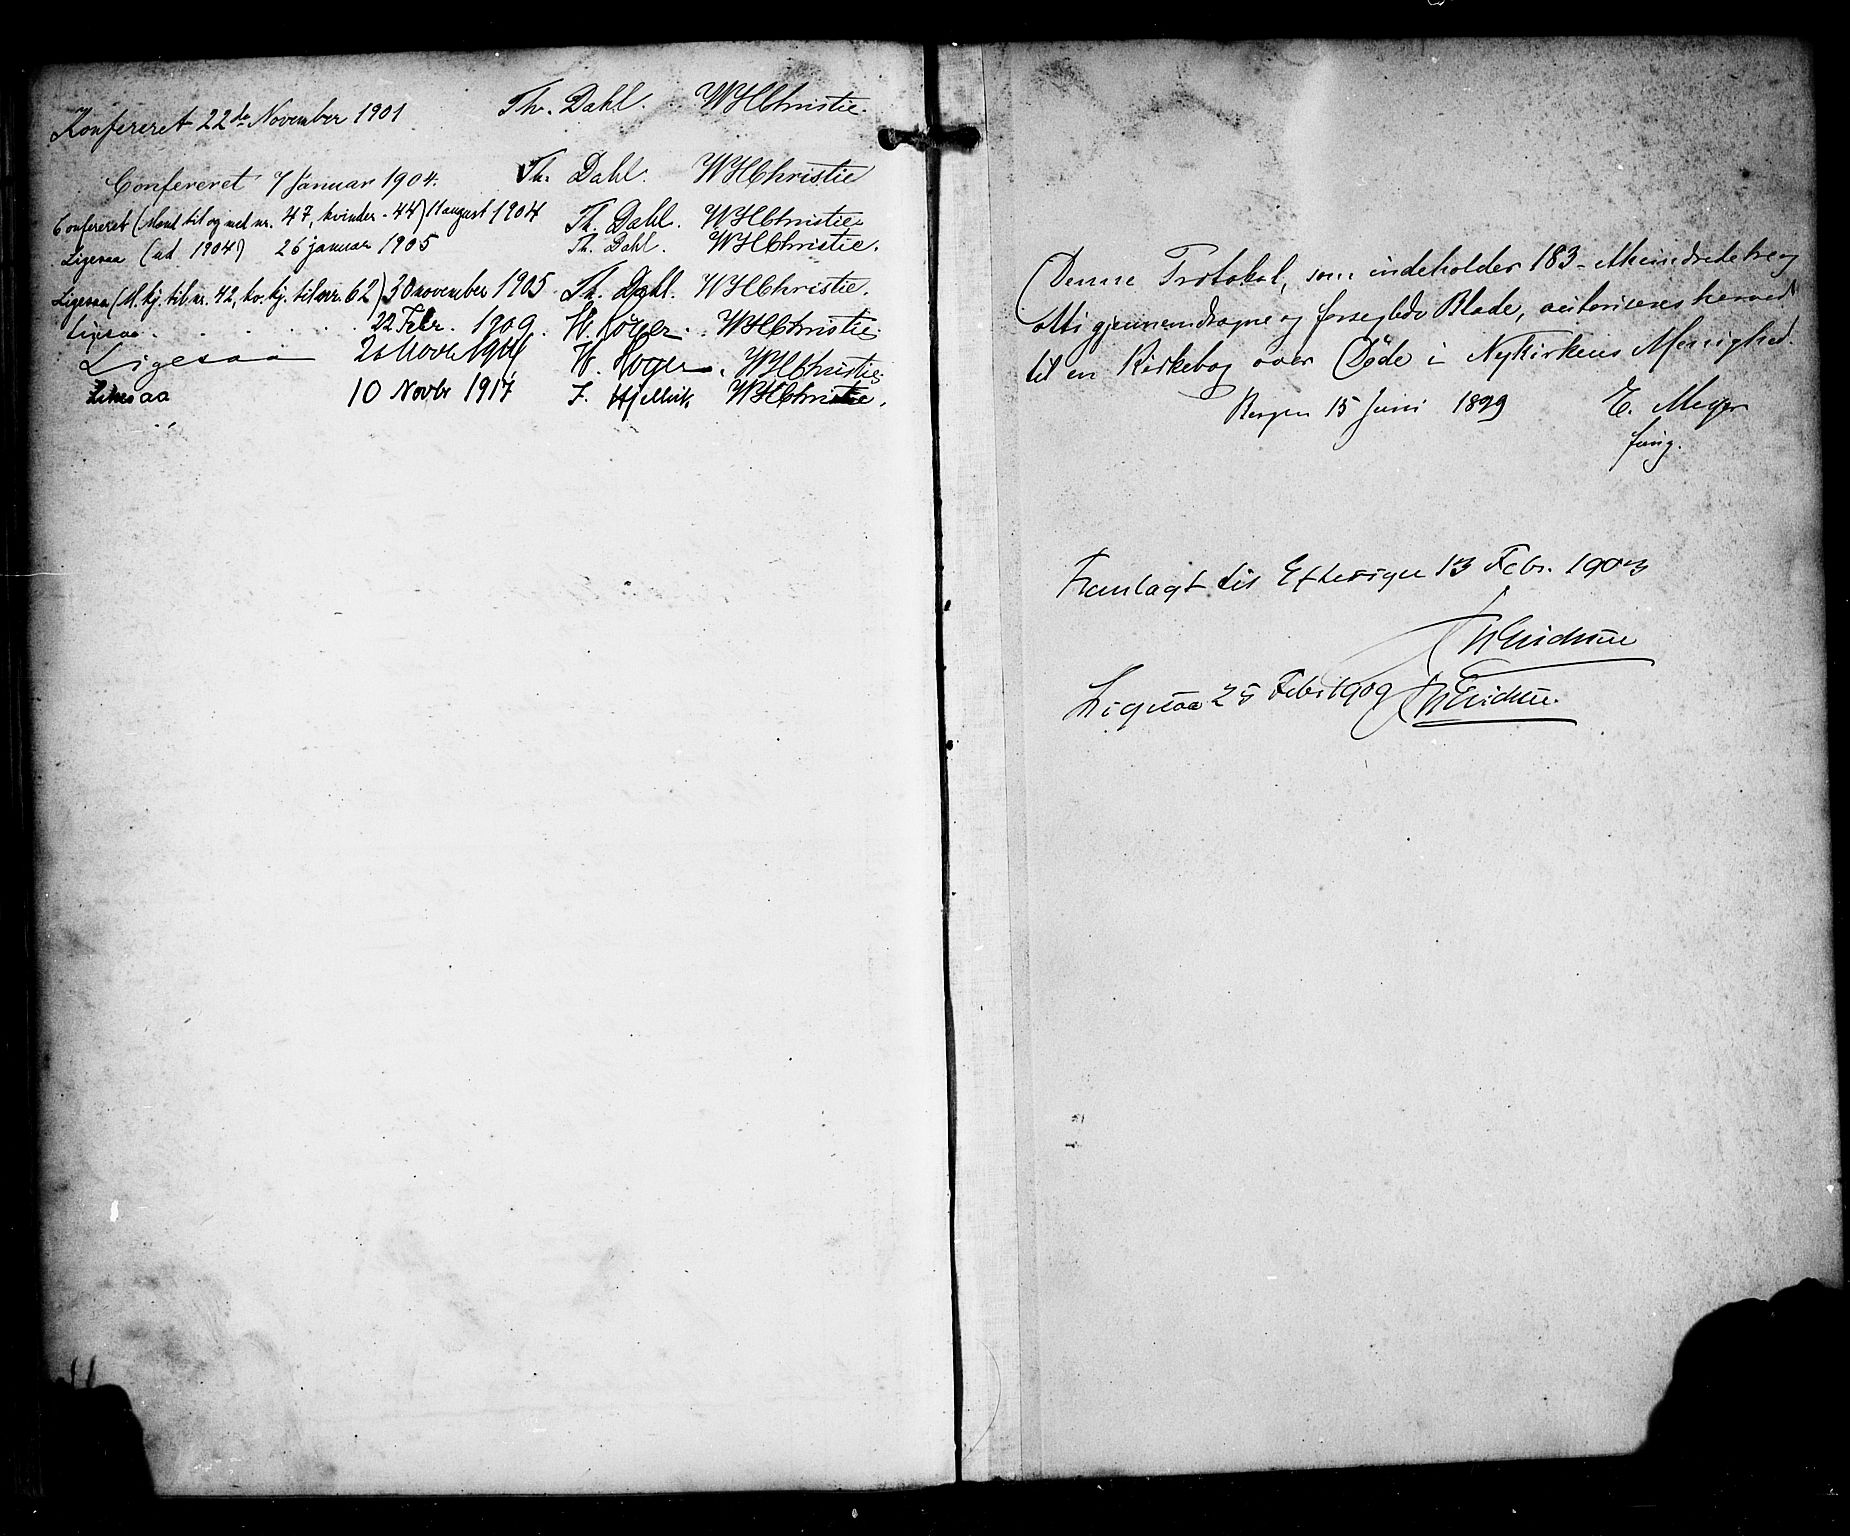 Konfereret 22de November 1901 Th. Dahl. WHChristie.
Confereret 7 Januar 1904. Th. Dahl. WHChristie
Confereret (Mænd til og med nr. 47, kvinder - 44) 11 august 1904 Th. Dahl. WHChristie
Ligesaa (ud 1904) 26 januar 1905 Th. Dahl. WHChristie.
Ligesaa (M.kj. til nr. 42, kv.kj. til nr. 62) 30 november 1905 Th. Dahl. WHChristie.
Ligesaa 22 Febr. 1909. H. Koger. WHChristie.
Ligesaa Novbr H. Koger. WHChristie.
Likesaa 10 Novbr 1917 J. Hjellvik WHChristie.
Denne Protokol, som indeholder 183 - Et hundrede tre og
otti gjennemdragne og forseglede Blade, autoriseres herved
til en Kirkebog over Døde i Nykirkens Menighed.
Bergen 15 Juni 1899 E. Meyer
fung.
Fremlagt til Eftersyn 13 Febr. 1903
Ligesaa 25 Febr 1909